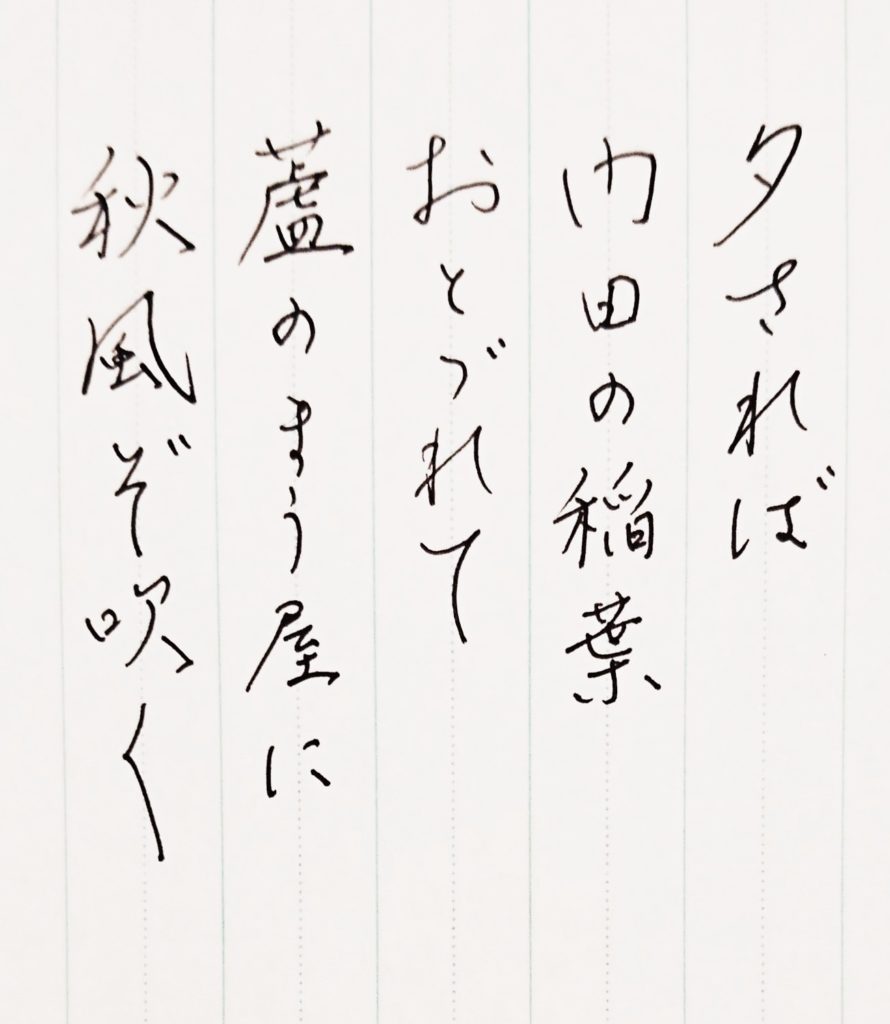 夕されば
門田の稲葉
おとづれて
蘆のまろ屋に
秋風ぞ吹く